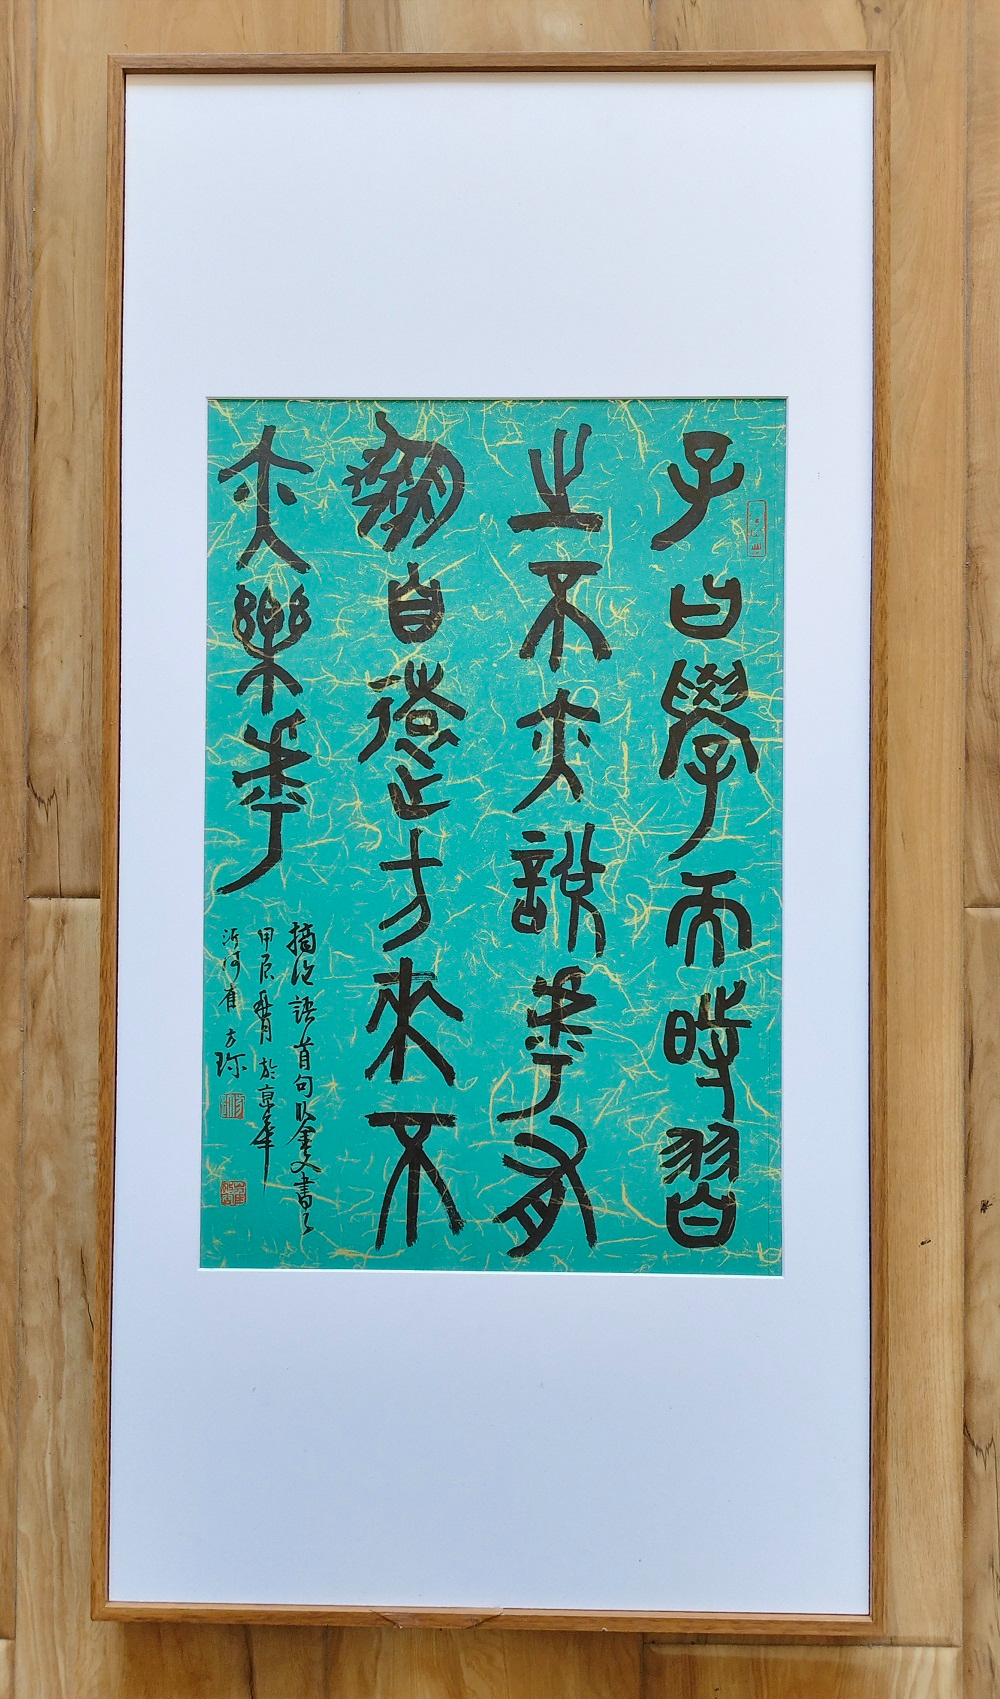 子曰學而時習
之不亦說乎有
朋自遠方來不
亦樂乎
摘論語首句以金文書之
甲辰 於京華
沂河 方珎